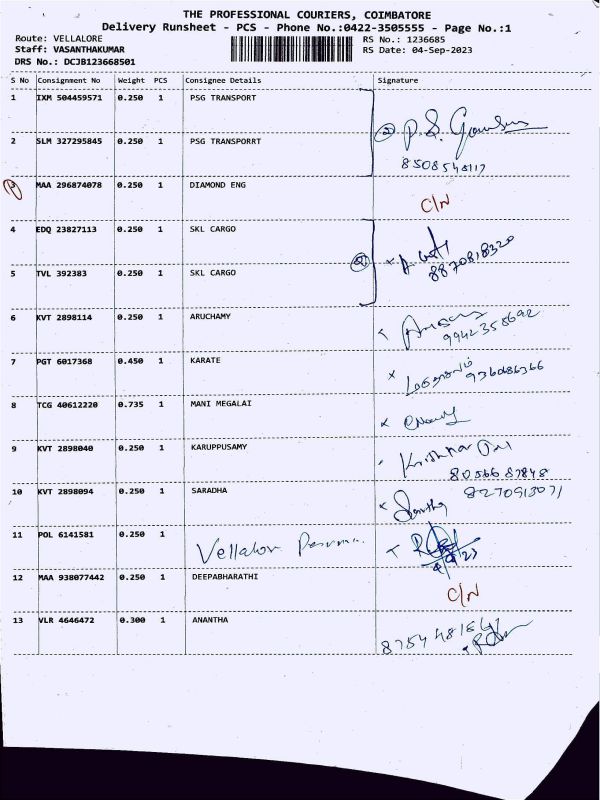 THE PROFESSIONAL COURIERS, COIMBATORE
Delivery Runsheet - PCS - Phone No.:0422-3505555 - Page No.:1
Route: VELLALORE
RS No.: 1236685
Staff: VASANTHAKUMAR
RS Date: 04-Sep-2023
DRS No.: DCJB123668501
S No Consignment No Weight PCS Consignee Details Signature
1 IXM 504459571 0.250 1 PSG TRANSPORT
2 SLM 327295845 0.250 1 PSG TRANSPORRT
8508548117
3 MAA 296874078 0.250 1 DIAMOND ENG C/N
4 EDQ 23827113 0.250 1 SKL CARGO
8870818320
5 TVL 392383 0.250 1 SKL CARGO
6 KVT 2898114 0.250 1 ARUCHAMY
9942358692
7 PGT 6017368 0.450 1 KARATE
8 TCG 40612220 0.735 1 MANI MEGALAI
9 KVT 2898040 0.250 1 KARUPPUSAMY
10 KVT 2898094 0.250 1 SARADHA
8270913071
11 POL 6141581 0.250 1 Vellalor
12 MAA 938077442 0.250 1 DEEPABHARATHI C/N
13 VLR 4646472 0.300 1 ANANTHA